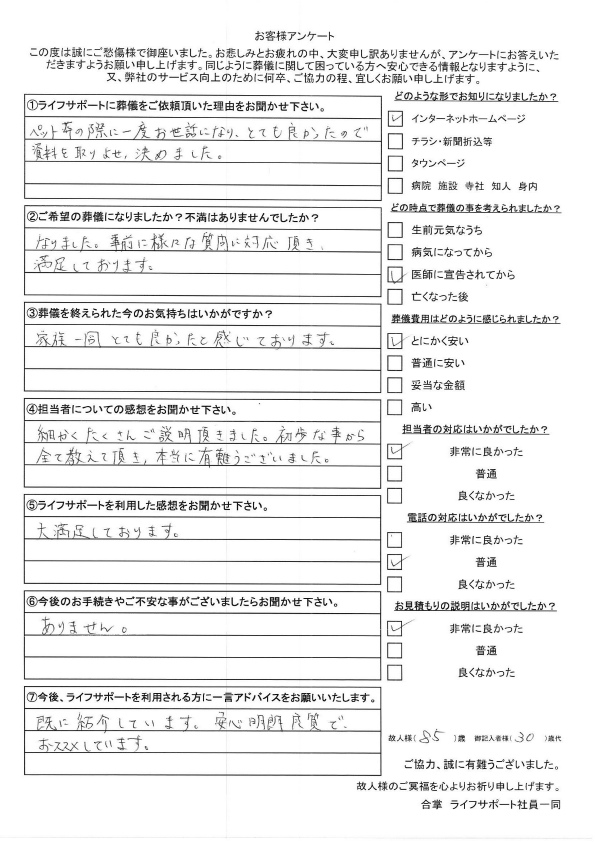 お客様アンケート
この度は誠にご愁傷様で御座いました。お悲しみとお疲れの中、大変申し訳ありませんが、アンケートにお答えいた
だきますようお願い申し上げます。同じように葬儀に関して困っている方へ安心できる情報となりますように、
又、弊社のサービス向上のために何卒、ご協力の程、宜しくお願い申し上げます。
①ライフサポートに葬儀をご依頼頂いた理由をお聞かせ下さい。
ペット葬の際に一度お世話になり、とても良かったので
資料を取りよせ、決めました。
②ご希望の葬儀になりましたか？不満はありませんでしたか？
なりました。事前に様々な質問に対応頂き、
満足しております。
③葬儀を終えられた今のお気持ちはいかがですか？
家族一同とても良かったと感じております。
④担当者についての感想をお聞かせ下さい。
細かくたくさんご説明頂きました。初歩な事から
全て教えて頂き、本当に有難うございました。
⑤ライフサポートを利用した感想をお聞かせ下さい。
大満足しております。
⑥今後のお手続きやご不安な事がございましたらお聞かせ下さい。
ありません。
⑦今後、ライフサポートを利用される方に一言アドバイスをお願いいたします。
既に紹介しています。安心明朗良質で、
おススメしています。
どのような形でお知りになりましたか？
インターネットホームページ
チラシ・新聞折込等
タウンページ
病院 施設 寺社 知人 身内
どの時点で葬儀の事を考えられましたか？
生前元気なうち
病気になってから
医師に宣告されてから
亡くなった後
葬儀費用はどのように感じられましたか？
とにかく安い
普通に安い
妥当な金額
高い
担当者の対応はいかがでしたか？
非常に良かった
普通
良くなかった
電話の対応はいかがでしたか？
非常に良かった
普通
良くなかった
お見積もりの説明はいかがでしたか？
非常に良かった
普通
良くなかった
故人様（85）歳 御記入者様（30）歳代
ご協力、誠に有難うございました。
故人様のご冥福を心よりお祈り申し上げます。
合掌 ライフサポート社員一同